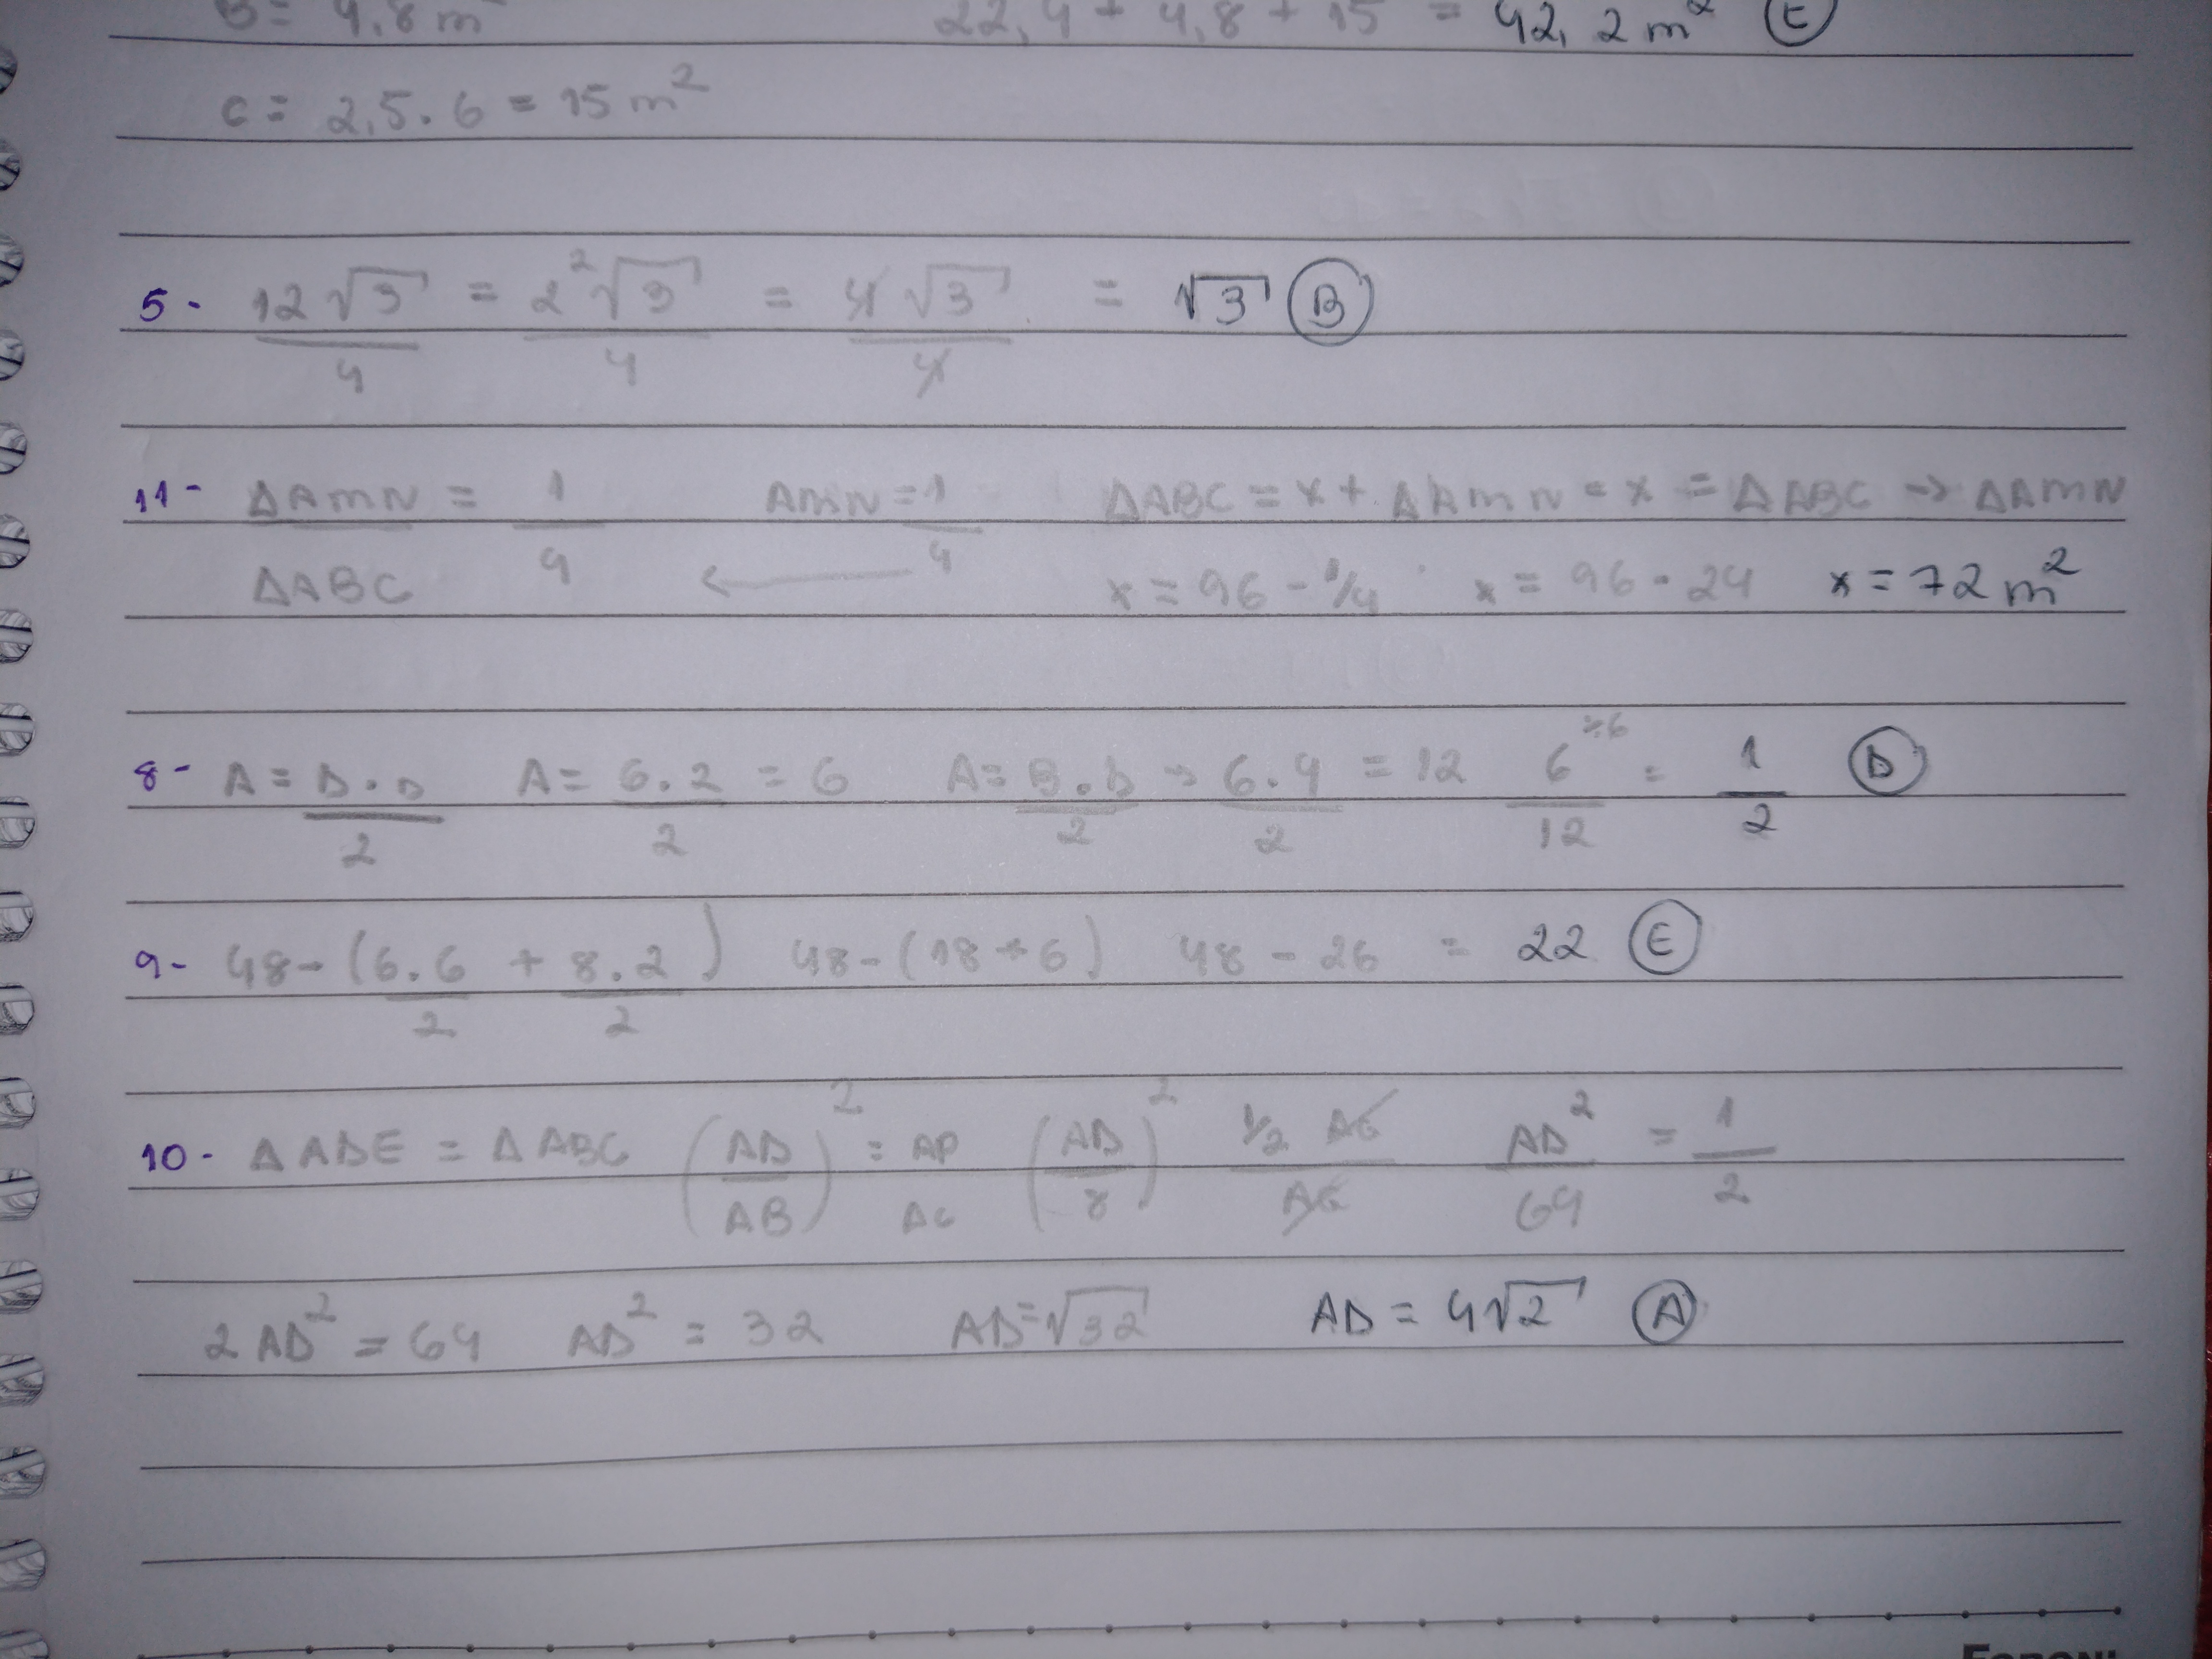 B = 4,8 m² 22,4 + 4,8 + 15 = 42,2 m² (E)
C = 2,5 . 6 = 15 m²
5 - 12√3/4 = 2²√3/4 = 4√3/4 = √3 (B)
11 - ΔAMN/ΔABC = 1/4 AMN = 1/4 ΔABC = x + ΔAMN = x = ΔABC → ΔAMN
← x = 96 - 1/4 x = 96 - 24 x = 72 m²
8 - A = B . b/2 A = 6 . 2/2 = 6 A = B . b/2 → 6 . 4/2 = 12 6/12 ÷6 = 1/2 (D)
9 - 48 - (6.6/2 + 8.2/2) 48 - (18 + 6) 48 - 26 = 22 (E)
10 - ΔADE = ΔABC (AD/AB)² = AP/AG (AD/8)² 1/2 AG/AG AD²/64 = 1/2
2AD² = 64 AD² = 32 AD = √32 AD = 4√2 (A)